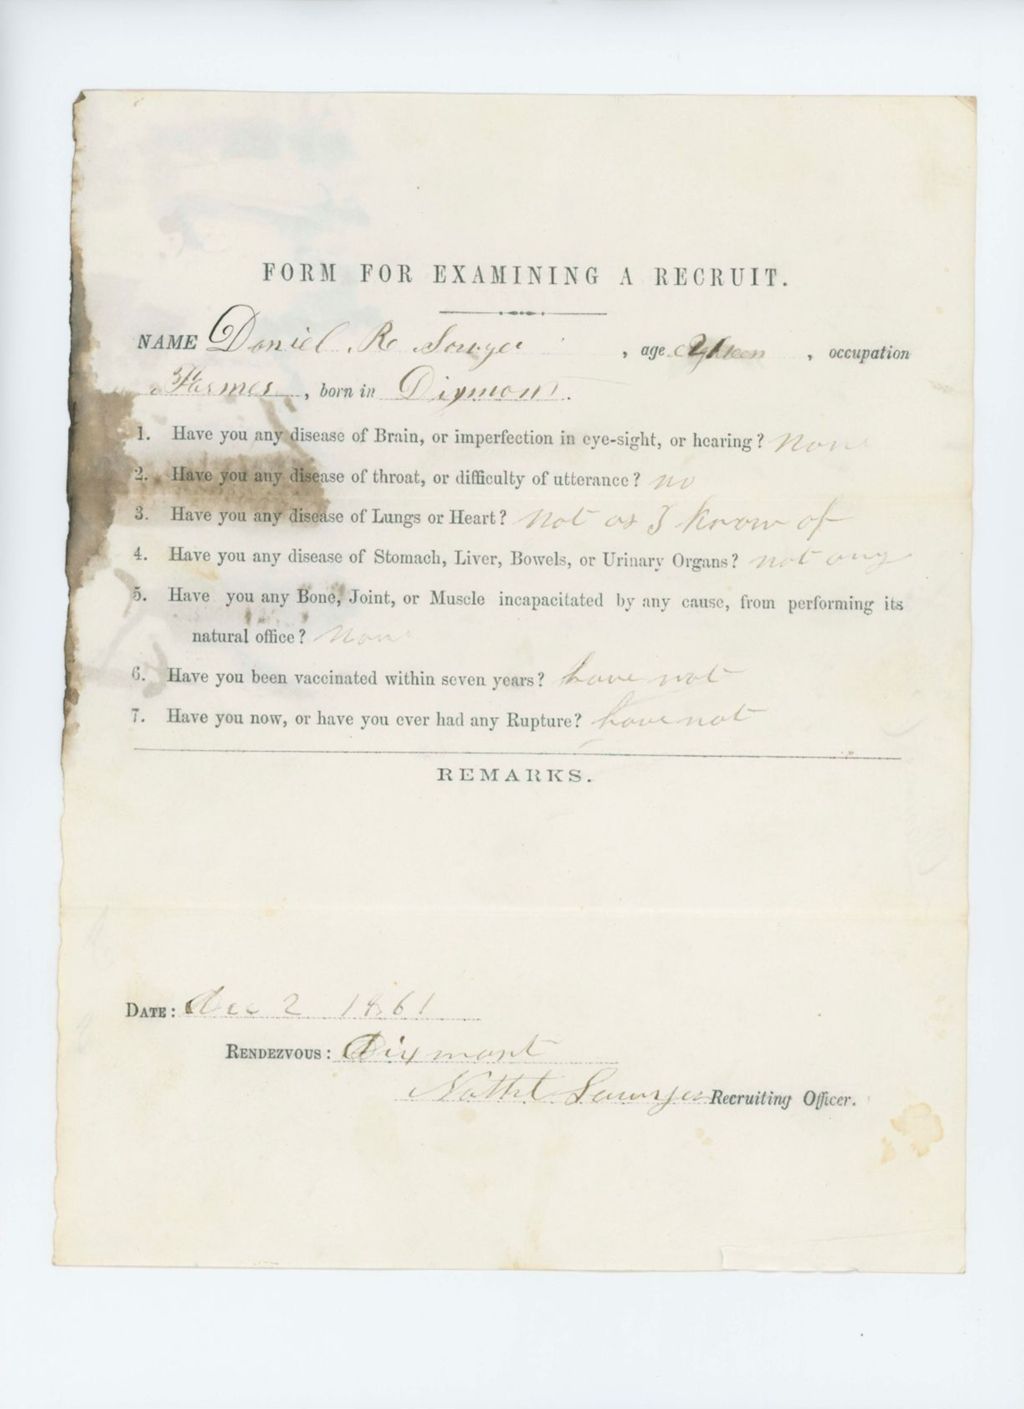 FORM FOR EXAMINING A RECRUIT.
NAME Daniel R Sawyer , age , occupation
Farmer , born in Dixmont.
1. Have you any disease of Brain, or imperfection in eye-sight, or hearing? None
2. Have you any disease of throat, or difficulty of utterance? no
3. Have you any disease of Lungs or Heart? not as I know of
4. Have you any disease of Stomach, Liver, Bowels, or Urinary Organs? not any
5. Have you any Bone, Joint, or Muscle incapacitated by any cause, from performing its
natural office? None
6. Have you been vaccinated within seven years? have not
7. Have you now, or have you ever had any Rupture? have not
REMARKS.
DATE: Dec 2 1861
RENDEZVOUS: Dixmont
Nathl Sawyer Recruiting Officer.